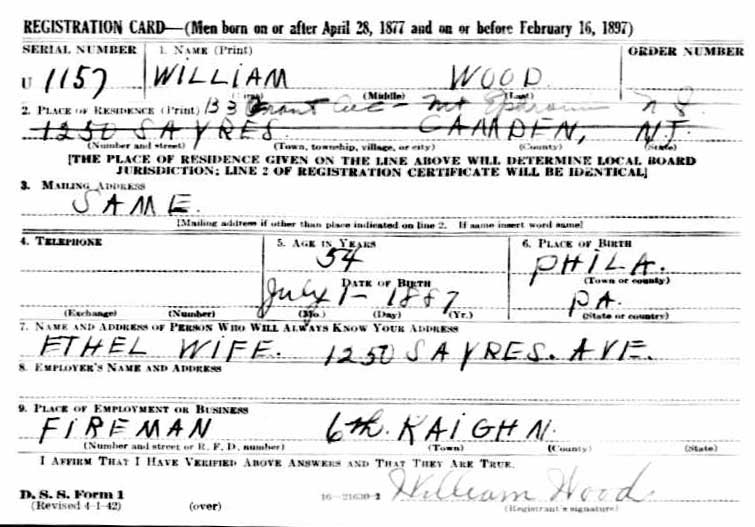 REGISTRATION CARD—(Men born on or after April 28, 1877 and on or before February 16, 1897)
SERIAL NUMBER 1. NAME (Print) ORDER NUMBER
U 1157 WILLIAM WOOD
(Middle) (Last)
2. PLACE OF RESIDENCE (Print) 133 Grant Ave - Mt Ephraim N J
1250 SAYRES CAMDEN, NJ
(Number and street) (Town, township, village, or city) (County) (State)
[THE PLACE OF RESIDENCE GIVEN ON THE LINE ABOVE WILL DETERMINE LOCAL BOARD
JURISDICTION; LINE 2 OF REGISTRATION CERTIFICATE WILL BE IDENTICAL]
3. MAILING ADDRESS
SAME.
[Mailing address if other than place indicated on line 2. If same insert word same]
4. TELEPHONE 5. AGE IN YEARS 6. PLACE OF BIRTH
54 PHILA.
DATE OF BIRTH (Town or county)
July 1- 1887 PA.
(Exchange) (Number) (Mo.) (Day) (Yr.) (State or country)
7. NAME AND ADDRESS OF PERSON WHO WILL ALWAYS KNOW YOUR ADDRESS
ETHEL WIFE. 1250 SAYRES. AVE.
8. EMPLOYER'S NAME AND ADDRESS
9. PLACE OF EMPLOYMENT OR BUSINESS
FIREMAN 6th. KAIGHN.
(Number and street or R. F. D. number) (Town) (County) (State)
I AFFIRM THAT I HAVE VERIFIED ABOVE ANSWERS AND THAT THEY ARE TRUE.
D. S. S. Form 1
(Revised 4-1-42) (over) 16—21630-2 William Wood
(Registrant's signature)